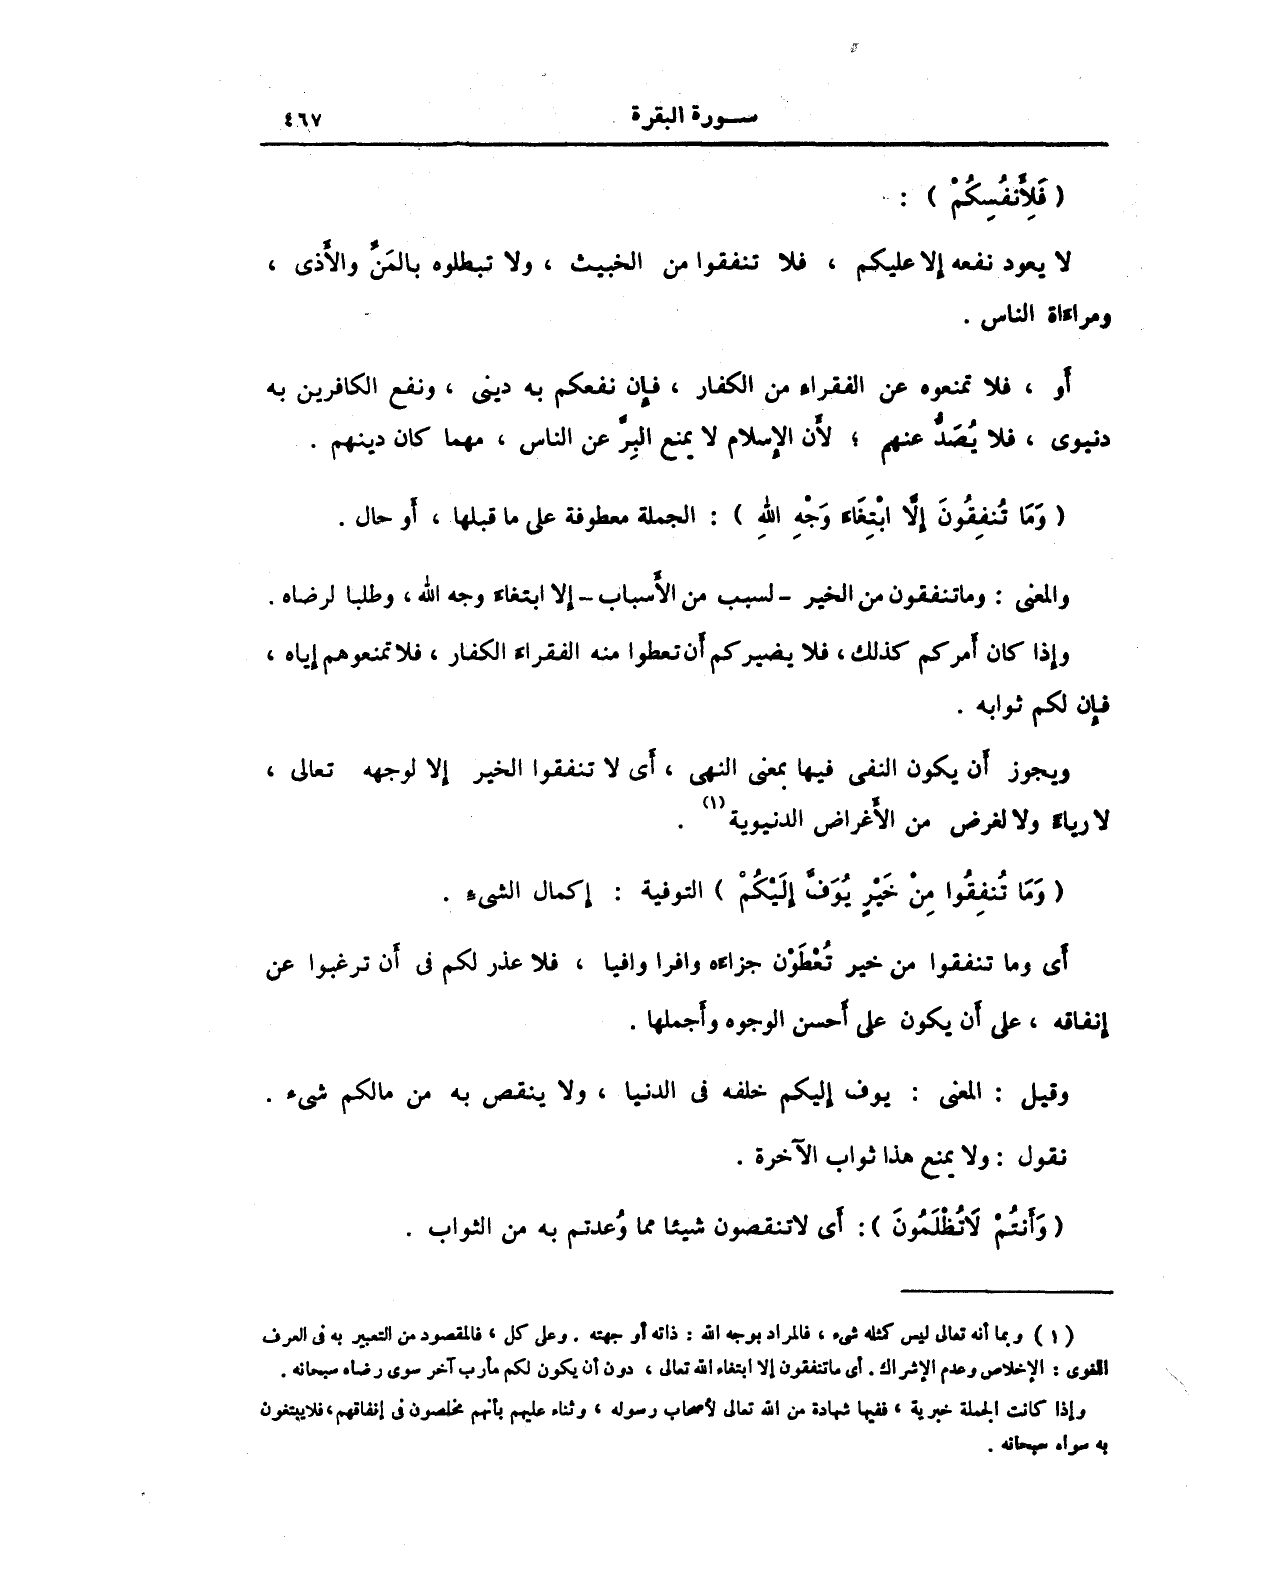 سورة البقرة ٤٦٧
( فَلِأَنفُسِكُمْ ) :
لا يعود نفعه إلا عليكم ، فلا تنفقوا من الخبيث ، ولا تبطلوه بالمَنِّ والأَذى ،
ومراءاة الناس .
أَو ، فلا تمنعوه عن الفقراء من الكفار ، فإن نفعكم به دينى ، ونفع الكافرين به
دنيوى ، فلا يُصَدُّ عنهم ؛ لأَن الإسلام لا يمنع البِرَّ عن الناس ، مهما كان دينهم .
( وَمَا تُنفِقُونَ إِلَّا ابْتِغَاءَ وَجْهِ اللهِ ) : الجملة معطوفة على ما قبلها ، أَو حال .
والمعنى : وماتنفقون من الخير - لسبب من الأَسباب - إلا ابتغاء وجه الله ، وطلبا لرضاه .
وإذا كان أَمركم كذلك ، فلا يضيركم أَن تعطوا منه الفقراء الكفار ، فلا تمنعوهم إياه ،
فإن لكم ثوابه .
ويجوز أَن يكون النفى فيها بمعنى النهى ، أَى لا تنفقوا الخير إلا لوجهه تعالى ،
لا رياءً ولا لغرض من الأَغراض الدنيوية (١) .
( وَمَا تُنفِقُوا مِنْ خَيْرٍ يُوَفَّ إِلَيْكُمْ ) التوفية : إكمال الشىء .
أَى وما تنفقوا من خير تُعْطَوْن جزاءه وافرا وافيا ، فلا عذر لكم فى أَن ترغبوا عن
إنفاقه ، على أَن يكون على أَحسن الوجوه وأَجملها .
وقيل : المعنى : يوف إليكم خلفه فى الدنيا ، ولا ينقص به من مالكم شىء .
نقول : ولا يمنع هذا ثواب الآخرة .
( وَأَنتُمْ لَاتُظْلَمُونَ ) : أَى لاتنقصون شيئا مما وُعدتم به من الثواب .
( ١ ) وبما أنه تعالى ليس كمثله شىء ، فالمراد بوجه الله : ذاته أو جهته . وعلى كل ، فالمقصود من التعبير به فى العرف
اللغوى : الإخلاص وعدم الإشراك . أى ماتنفقون إلا ابتغاء الله تعالى ، دون أن يكون لكم مأرب آخر سوى رضاه سبحانه .
وإذا كانت الجملة خبرية ، ففيها شهادة من الله تعالى لأصحاب رسوله ، وثناء عليهم بأنهم مخلصون فى إنفاقهم ، فلايبتغون
به سواه سبحانه .